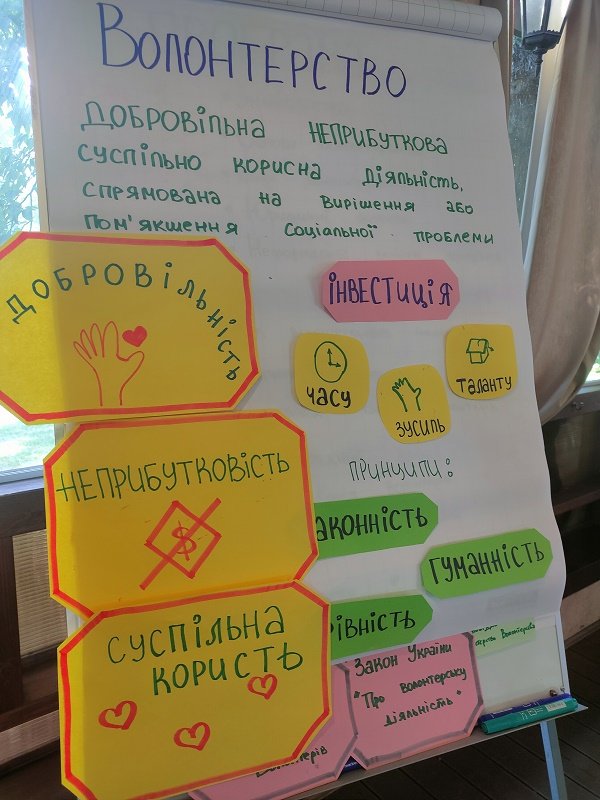 Волонтерство
Добровільна неприбуткова
суспільно корисна діяльність,
спрямована на вирішення або
пом'якшення соціальної проблеми
ДОБРОВІЛЬНІСТЬ
інвестиція
часу
зусиль
таланту
НЕПРИБУТКОВІСТЬ
$
принципи:
аконність
гуманність
рівність
СУСПІЛЬНА
КОРИСТЬ
Закон України
"Про волонтерську
діяльність"